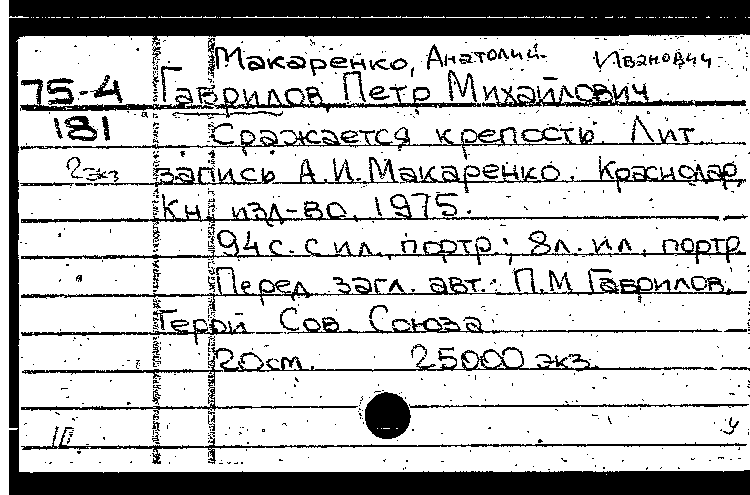 Макаренко, Анатолий Иванович
75-4 Гаврилов, Петр Михайлович
181 Сражается крепость. Лит.
2экз запись А.И.Макаренко. Краснодар,
Кн. изд-во, 1975.
94с. с ил., портр.; 8л. ил., портр.
Перед загл. авт.: П.М Гаврилов,
Герой Сов. Союза.
20см. 25000 экз.
10 у